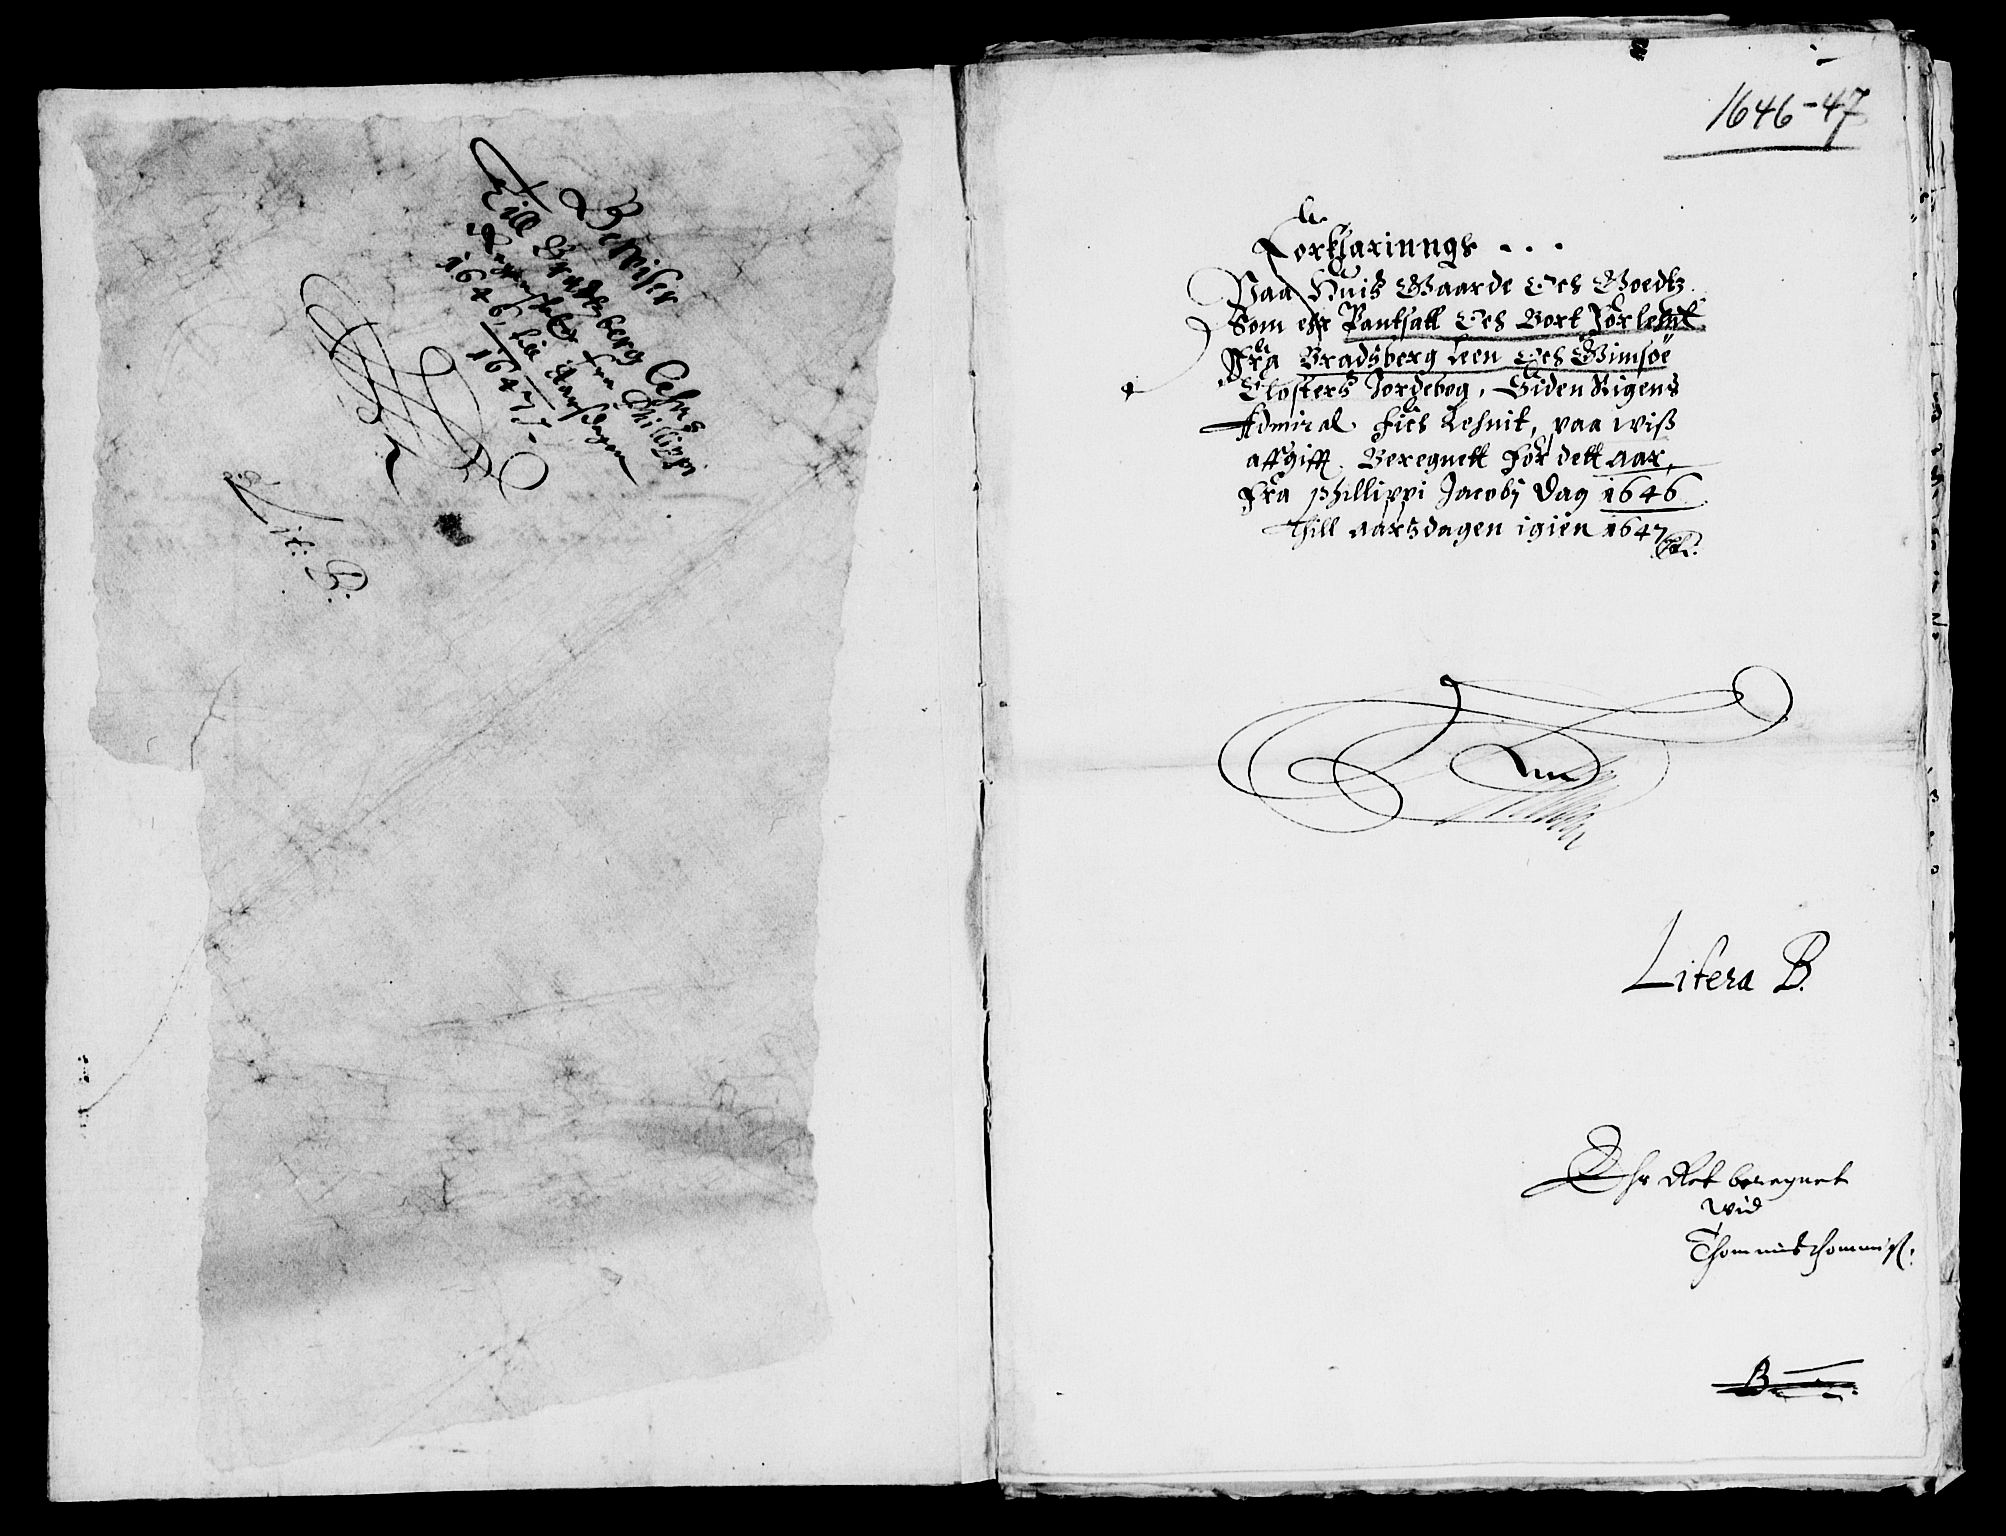 Bewiser
Till Bradtzberg Lehns
Regenskab fra Phillippi
1646, till Aarsdagen
1647
Lit: B.
1646-47
Forklaringh . . .
Paa Huis Gaarde Och Goedtz
Som ehr Pantsatt Och Bort Forlehnt
Fra Bradsberg Leen Och Gimsøe
Closters Jordebog, Siden Rigens
Admiral Fich Lehnit, paa wiss
affgifft. Beregnett for dett aar,
Fra Phillippi Jacobj Dag 1646
Thill aarsdagen igien 1647
Litera B.
Ehr Ret beregnet
wid
B